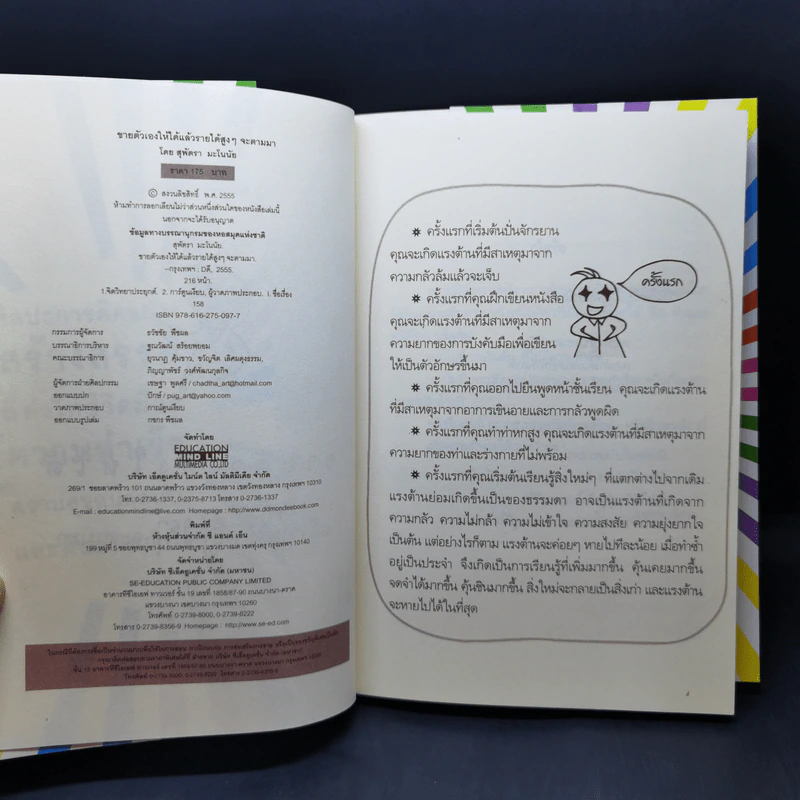 ขายตัวเองให้ได้แล้วรายได้สูงๆ จะตามมา
โดย สุพัตรา มะโนนัย
ราคา 175 บาท
© สงวนลิขสิทธิ์ พ.ศ. 2555
ห้ามทำการลอกเลียนไม่ว่าส่วนหนึ่งส่วนใดของหนังสือเล่มนี้
นอกจากจะได้รับอนุญาต
ข้อมูลทางบรรณานุกรมของหอสมุดแห่งชาติ
สุพัตรา มะโนนัย.
ขายตัวเองให้ได้แล้วรายได้สูงๆ จะตามมา.
--กรุงเทพฯ : Dดี, 2555.
216 หน้า.
1.จิตวิทยาประยุกต์. 2. การ์ตูนเงียบ, ผู้วาดภาพประกอบ. I. ชื่อเรื่อง
158
ISBN 978-616-275-097-7
กรรมการผู้จัดการ ธวัชชัย พืชผล
บรรณาธิการบริหาร ฐณวัฒน์ สร้อยพุยอม
คณะบรรณาธิการ ยุวนาฏ คุ้มขาว, ขวัญจิต เลิศผดุงธรรม,
ภิญญาพัชร์ วงศ์พัฒนกุลกิจ
ผู้จัดการฝ่ายศิลปกรรม เชษฐา พูลศรี / chadtha_art@hotmail.com
ออกแบบปก ปักษ์ / pug_art@yahoo.com
วาดภาพประกอบ การ์ตูนเงียบ
ออกแบบรูปเล่ม กชกร พืชผล
จัดทำโดย
EDUCATION
MIND LINE
MULTIMEDIA CO.,LTD
บริษัท เอ็ดดูเคชั่น ไมนด์ ไลน์ มัลติมีเดีย จำกัด
269/1 ซอยลาดพร้าว 101 ถนนลาดพร้าว แขวงวังทองหลาง เขตวังทองหลาง กรุงเทพฯ 10310
โทร. 0-2736-1337, 0-2375-8713 โทรสาร 0-2736-1337
E-mail : educationmindline@live.com Homepage : http://www.ddmondeebook.com/
พิมพ์ที่
ห้างหุ้นส่วนจำกัด ซี แอนด์ เอ็น
199 หมู่ที่ 5 ซอยพุทธบูชา 44 ถนนพุทธบูชา แขวงบางมด เขตทุ่งครุ กรุงเทพฯ 10140
จัดจำหน่ายโดย
บริษัท ซีเอ็ดยูเคชั่น จำกัด (มหาชน)
SE-EDUCATION PUBLIC COMPANY LIMITED
อาคารทีซีไอเอฟ ทาวเวอร์ ชั้น 19 เลขที่ 1858/87-90 ถนนบางนา-ตราด
แขวงบางนา เขตบางนา กรุงเทพฯ 10260
โทรศัพท์ 0-2739-8000, 0-2739-8222
โทรสาร 0-2739-8356-9 Homepage : http://www.se-ed.com
ครั้งแรก
✷ ครั้งแรกที่เริ่มต้นปั่นจักรยาน
คุณจะเกิดแรงต้านที่มีสาเหตุมาจาก
ความกลัวล้มแล้วจะเจ็บ
✷ ครั้งแรกที่คุณฝึกเขียนหนังสือ
คุณจะเกิดแรงต้านที่มีสาเหตุมาจาก
ความยากของการบังคับมือเพื่อเขียน
ให้เป็นตัวอักษรขึ้นมา
✷ ครั้งแรกที่คุณออกไปยืนพูดหน้าชั้นเรียน คุณจะเกิดแรงต้าน
ที่มีสาเหตุมาจากอาการเขินอายและการกลัวพูดผิด
✷ ครั้งแรกที่คุณทำท่าหกสูง คุณจะเกิดแรงต้านที่มีสาเหตุมาจาก
ความยากของท่าและร่างกายที่ไม่พร้อม
✷ ครั้งแรกที่คุณเริ่มต้นเรียนรู้สิ่งใหม่ๆ ที่แตกต่างไปจากเดิม
แรงต้านย่อมเกิดขึ้นเป็นของธรรมดา อาจเป็นแรงต้านที่เกิดจาก
ความกลัว ความไม่กล้า ความไม่เข้าใจ ความสงสัย ความยุ่งยากใจ
เป็นต้น แต่อย่างไรก็ตาม แรงต้านจะค่อยๆ หายไปทีละน้อย เมื่อทำซ้ำ
อยู่เป็นประจำ จึงเกิดเป็นการเรียนรู้ที่เพิ่มมากขึ้น คุ้นเคยมากขึ้น
จดจำได้มากขึ้น คุ้นชินมากขึ้น สิ่งใหม่จะกลายเป็นสิ่งเก่า และแรงต้าน
จะหายไปได้ในที่สุด